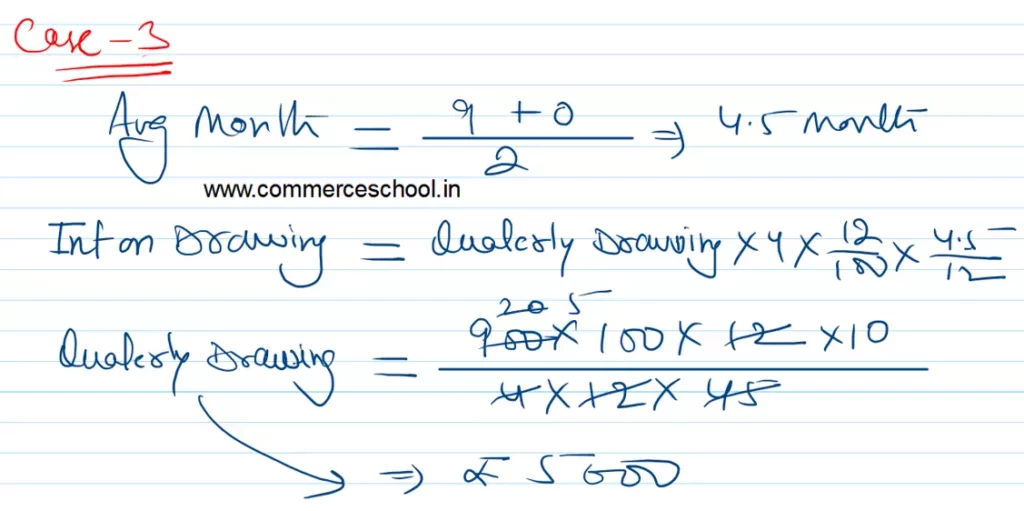 Case - 3
Avg Month = 9 + 0 / 2 ⇒ 4.5 month
www.commerceschool.in
Int on Drawing = Quaterly Drawing × 4 × 12/100 × 4.5/12
20 5
Quaterly Drawing = 900 × 100 × 12 × 10 / 4 × 12 × 45
⇒ ₹ 5000